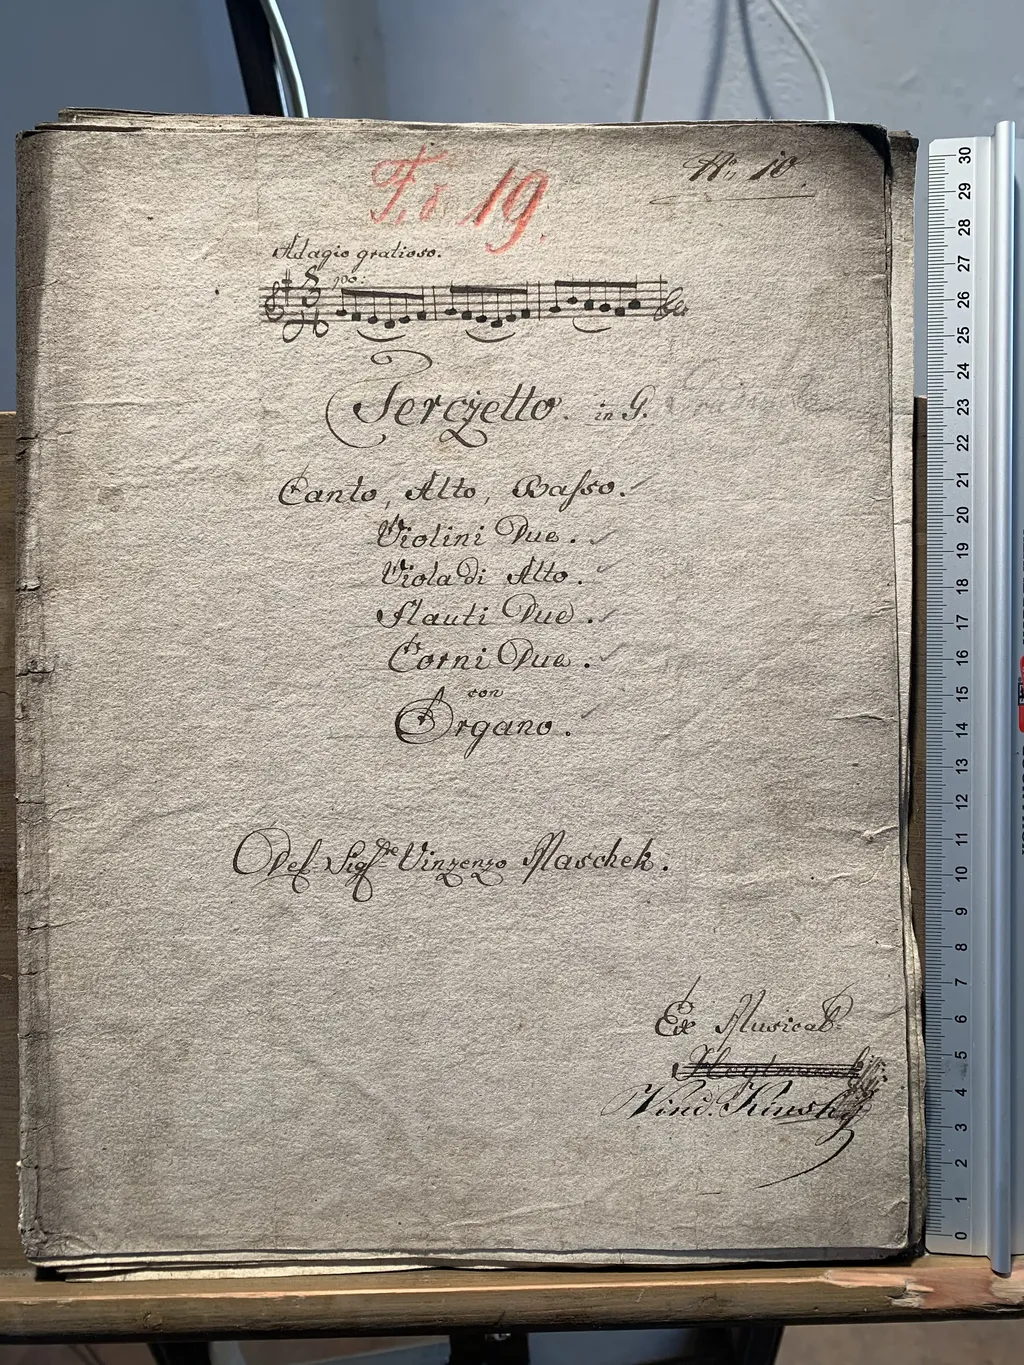 No 10.
F. d 19.
Adagio gratioso.
po:
Terczetto. in G.
Canto, Alto, Basso.
Violini Due.
Viola di Alto.
Flauti Due.
Corni Due.
con
Organo.
Del Sigre Vinzenzo Maschek.
Ex Musicalb.
Vind. Kinsky
30
29
28
27
26
25
24
23
22
21
20
19
18
17
16
15
14
13
12
11
10
9
8
7
6
5
4
3
2
1
0